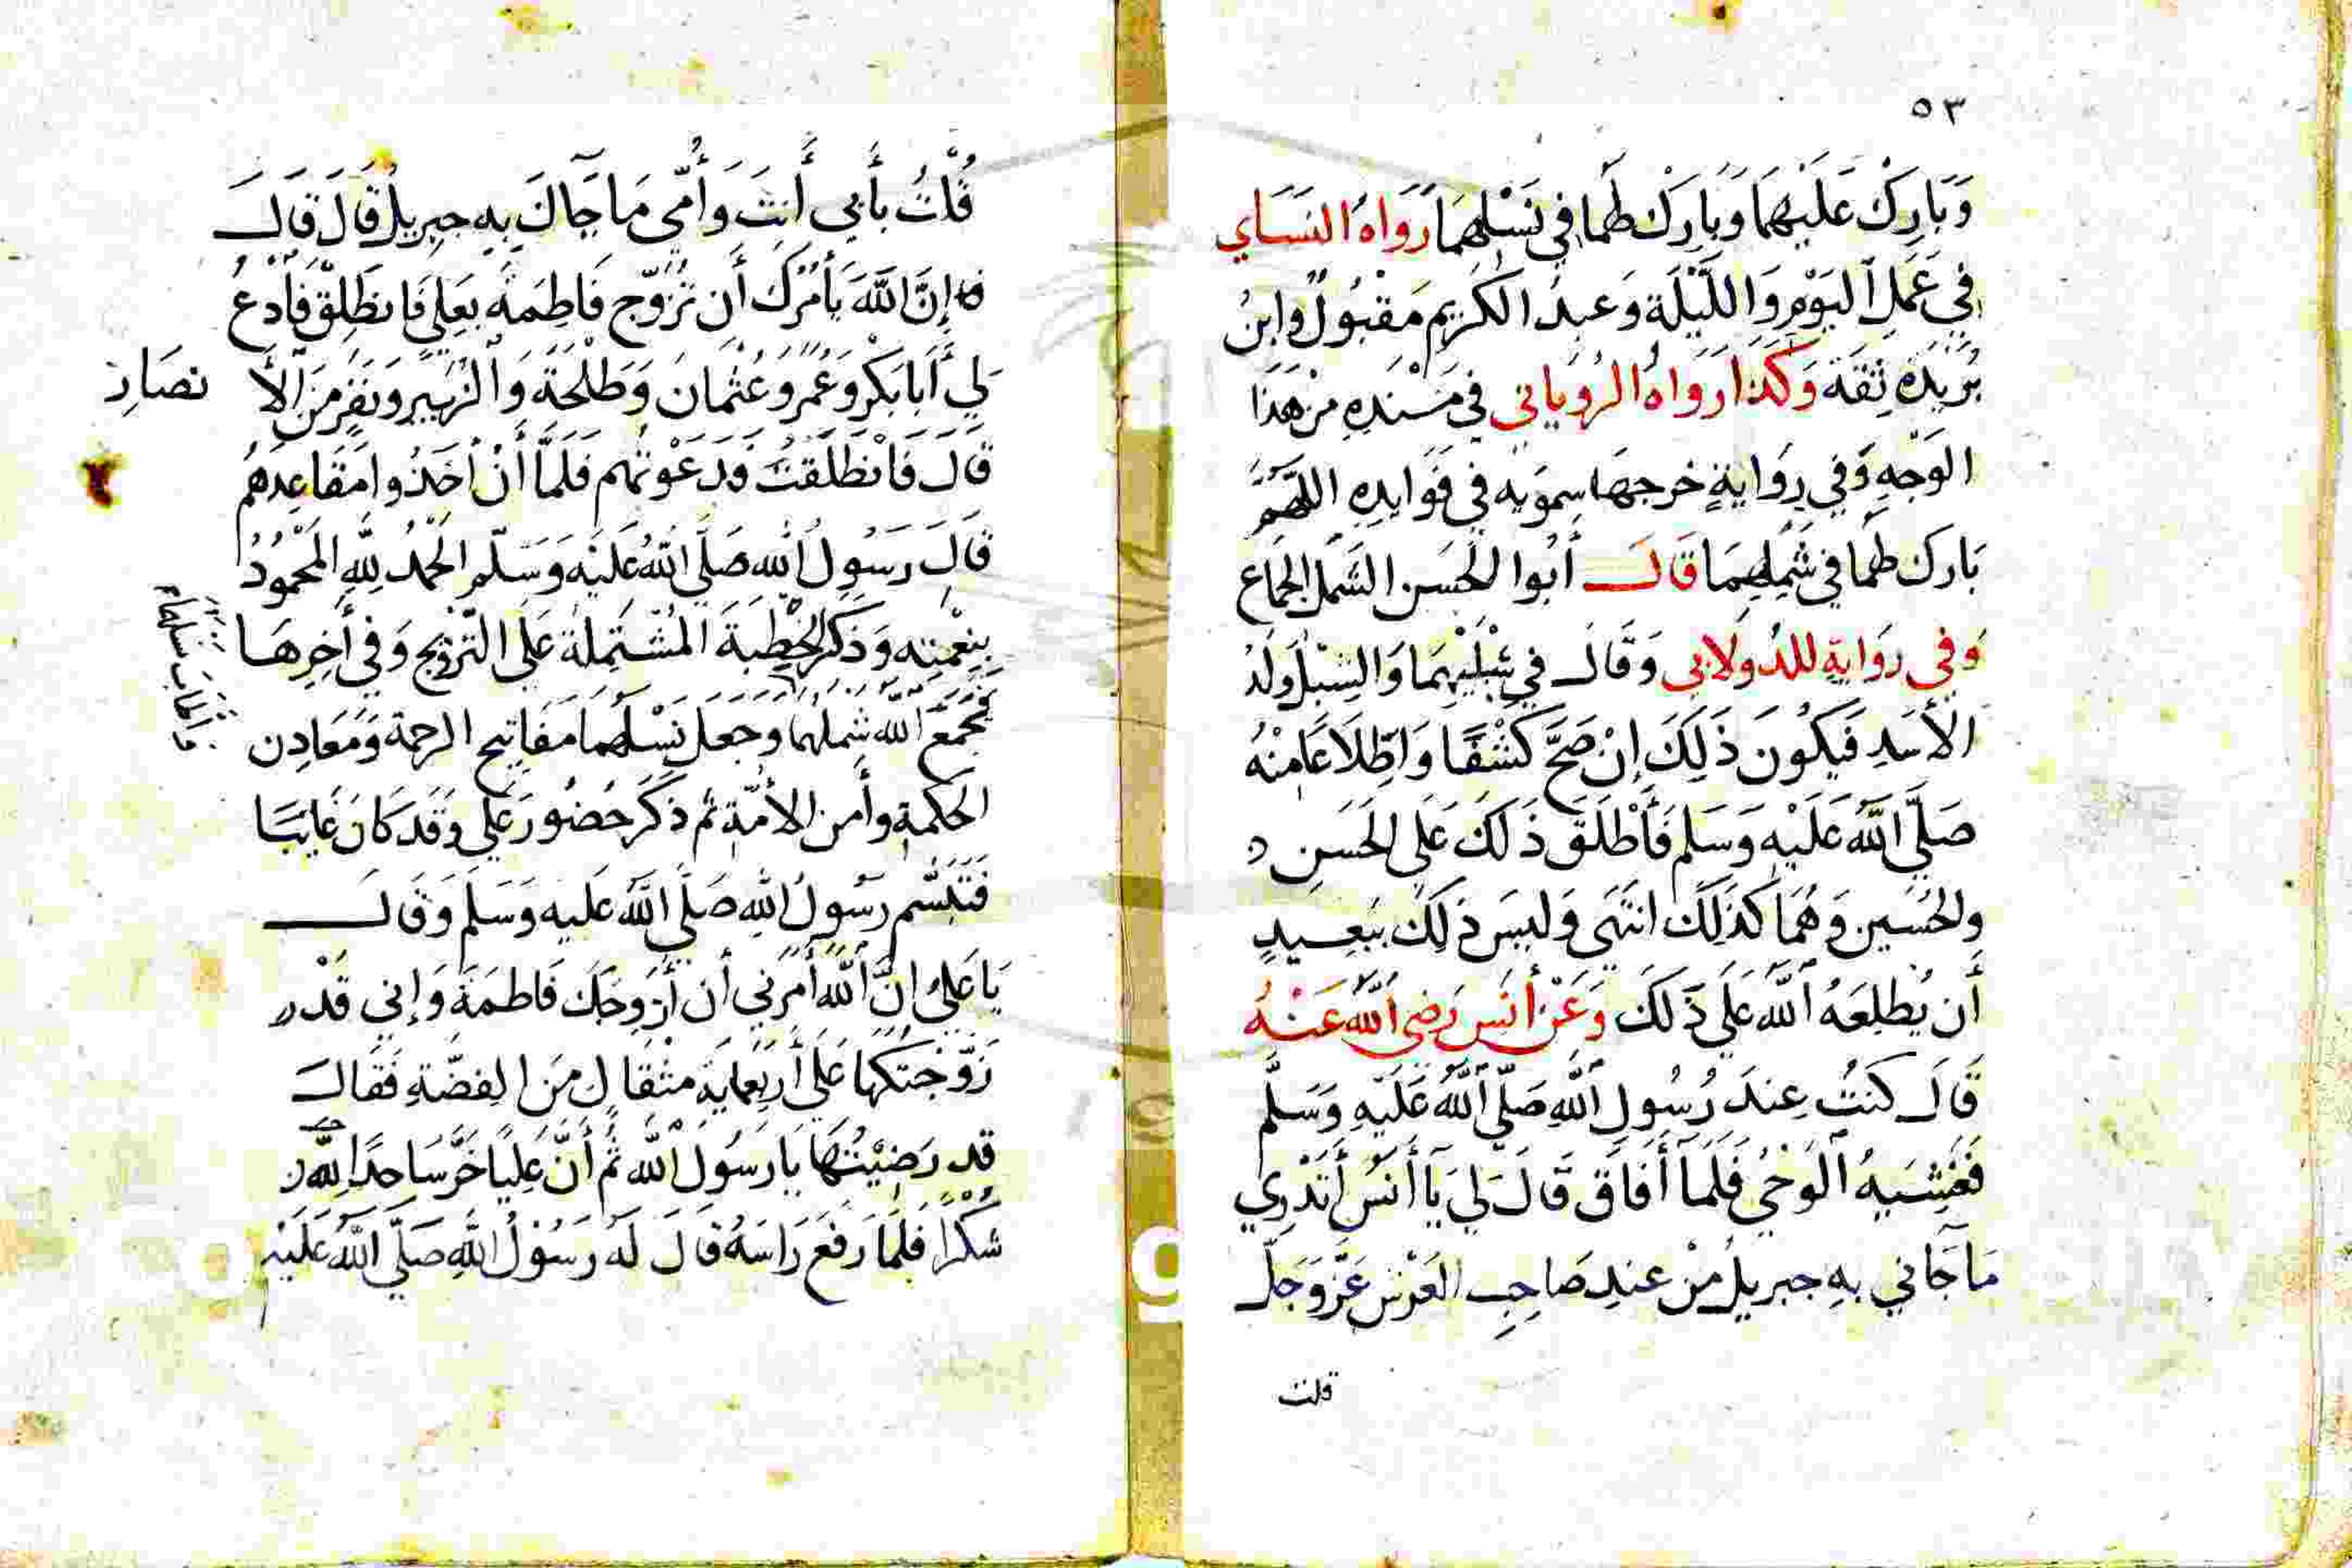 ٥٣
وَبَارِكْ عَلَيْهِمَا وَبَارِكْ لهُمَا فِي نَسْلِهِمَا رَوَاهُ النَسَاي
فِي عَمَلِ اليَوْمِ وَاللَّيْلَة وَعبدُ الكَرِيم مَقْبُولٌ وابنُ
بُرَيدَة ثِقَة وَكَذا رَوَاهُ الرُويَاني فِي مَسْنَدِهِ مِنْ هَذَا
الوَجْهِ وَفي رِوَايَةٍ خرجهَا سِمويَه في فَوَايدِهِ اللَّهُمَّ
بَارك لهُمَا في شَمْلِهِمَا قَالَ أبُوا الحَسَن الشَمل الجمَاع
وَفي روَايةٍ للدُولَابي وَقَالَ في شِبْلَيْهِمَا وَالشِبْلُ وَلَدُ
الأسَدِ فَيَكُونَ ذَلِكَ إنْ صَحَّ كَشْفًا وَاطِّلَاعًا مِنْهُ
صَلَّي اللَّهُ عَلَيْهِ وَسَلم فَأَطْلَقَ ذَلكَ عَلَى الحَسَنِ
ولحُسَين وَهُمَا كَذَلِكَ انتَهَى وَليسَ ذَلِكَ ببَعِيدٍ
أَن يُطلِعَهُ اللَّه عَلَي ذَلكَ وَعَنْ أنَسٍ رَضي اللَّهُ عَنْهُ
قَالَ كنتُ عِندَ رُسُولِ اللَّهِ صَلّي اللَّهُ عَلَيْهِ وَسَلَّم
فَغَشِيَهُ الوَحْيُ فَلَمَا أَفَاقَ قَالَ لي يَآ أنَسُ أَتَدْرِي
مَا جَاني بهِ جبريلُ مِنْ عندِ صَاحِبِ العَرْش عَزَّ وَجَلَّ
قلت
قُلْتُ بأَبي أَنتَ وَأُمّي مَا جَاكَ بِهِ جبرِيلُ قَالَ قَالَ
إنَّ اللَّهَ يَأمُرُكَ أَن تُزَوّج فَاطِمَة بعَلِي فَانطَلِقْ فَأدْعُ
لِي أَبَا بَكْرٍ وَعُمَرَ وَعُثْمَانَ وَطَلْحَةَ وَالزبَير وَنَفَرٍ مَنَ الأَ نصَار
قَالَ فَانطَلَقتُ فَدَعَوْتهُم فَلَمَّا أَنْ أخَذُوا مَقَاعِدَهُم
قَالَ رَسُولُ اللهِ صَلَّي اللَّهُ عَلَيْه وَسَلّم الحَمْدُ لِلَّهِ المَحْمُودُ
بِنِعْمَتِه وَذكَرَ الخُطبَة المُشْتَمِلَة عَلَى التّزويج وَفي أَخِرِهَا
فجَمَعَ اللَّه شَمْلَهُمَا وَجَعَلَ نَسْلَهُمَا مَفَاتيح الرحمة وَمَعَادِن
الحكمَةِ وأمن الأُمّة ثم ذكَرَ حُضُورَ عَلِي وَقَد كَانَ غَايبًا
فَتَبَسَّم رسُولُ اللهِ صَلّي اللَّهُ عَليه وَسَلَم وَقَالَ
يَا عَلِيُ إنَّ اللَّهَ أَمَرَني أن أزَوجَكَ فَاطمَة وَإني قَدْ
زَوّجتكهَا عَلَى أربَعمايَةِ مثقَالٍ مَن الفضَّةِ فَقَالَ
قد رَضِيْتُهَا يَا رَسُولَ اللَّه ثُم أنَّ عَلِيًا خَرَّ سَاجِدًا للَّه
شُكْرًا فَلَمَا رَفَعَ رَاسَهُ قَالَ لَهُ رَسُوْلُ اللَّهِ صَلَّي اللَّهُ عَلَيْه